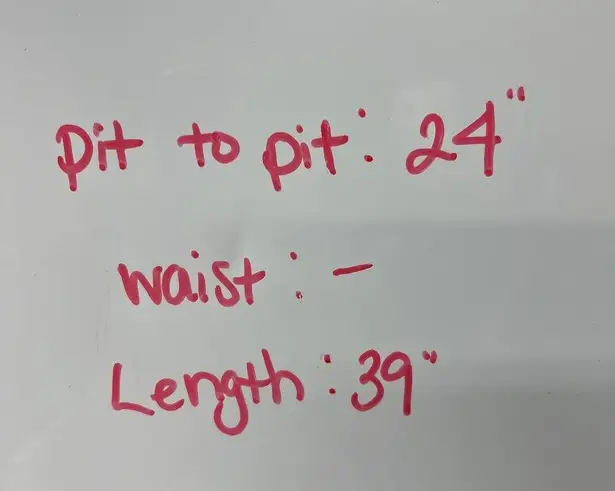 Pit to pit: 24"
waist: -
Length: 39"